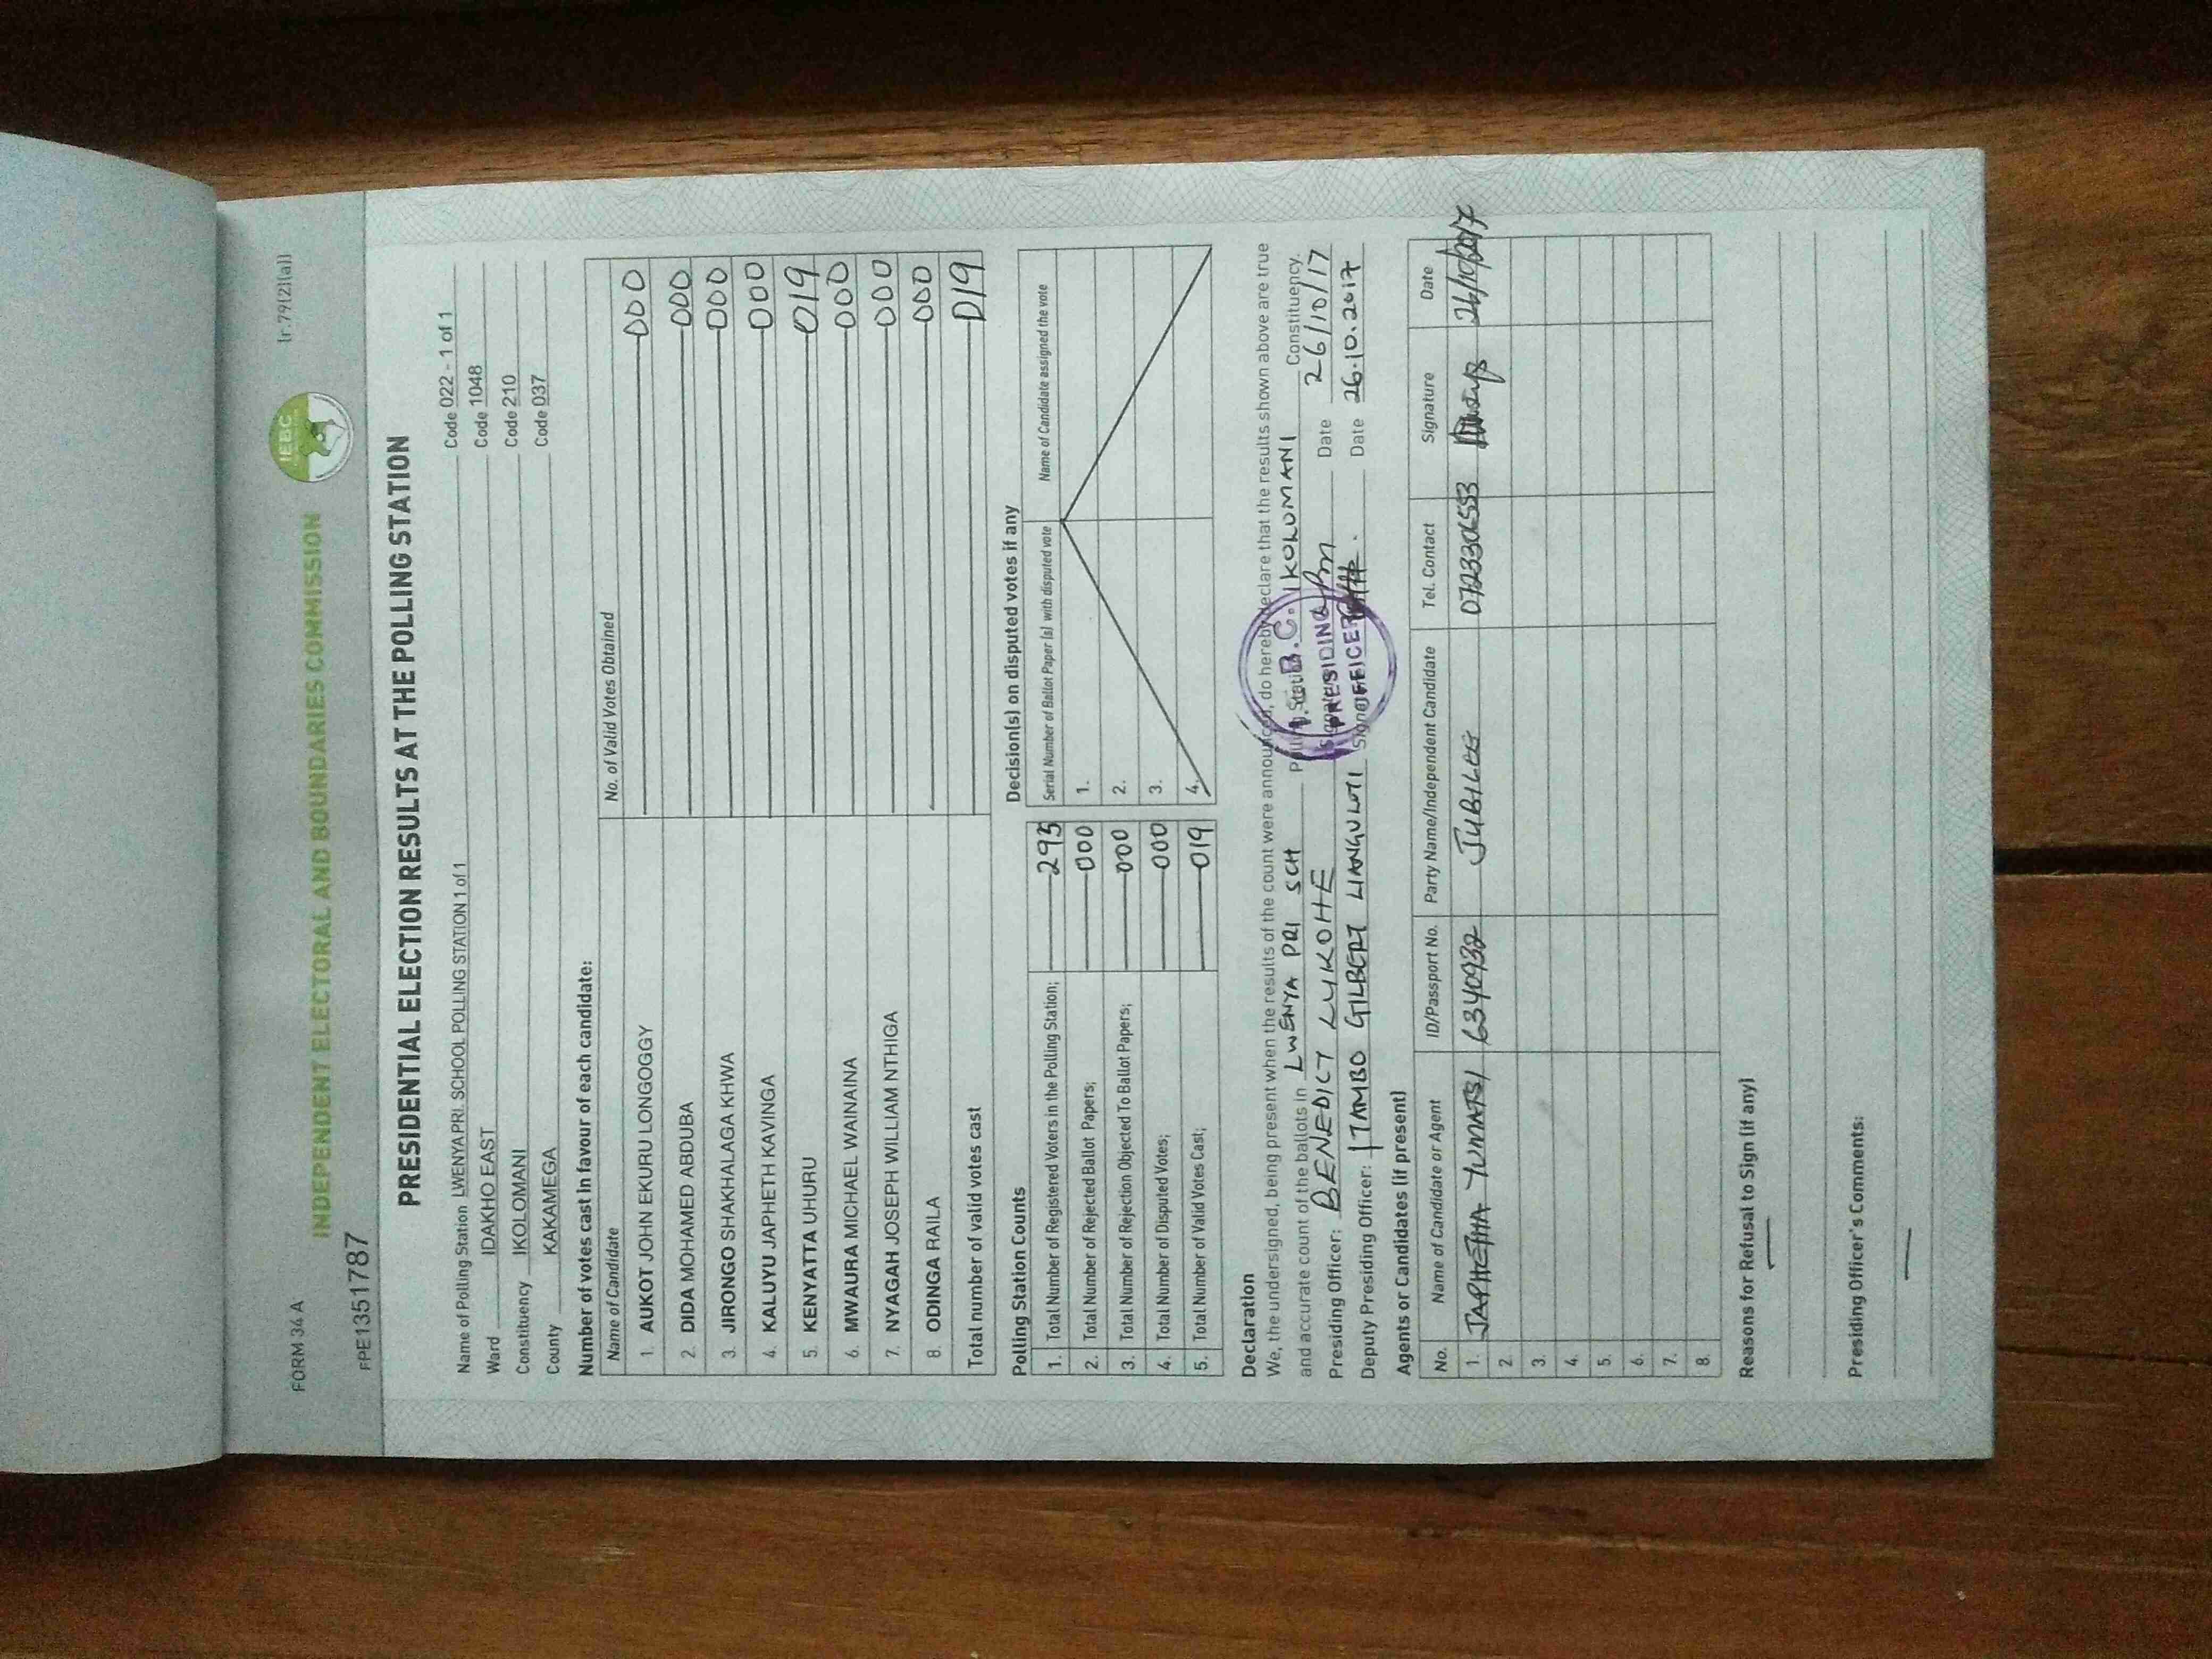 FORM 34 A
(r.79(2)(a))
INDEPENDENT ELECTORAL AND BOUNDARIES COMMISSION
IEBC
FPE1351787
PRESIDENTIAL ELECTION RESULTS AT THE POLLING STATION
Name of Polling Station LWENYA PRI. SCHOOL POLLING STATION 1 of 1 Code 022 - 1 of 1
Ward IDAKHO EAST Code 1048
Constituency IKOLOMANI Code 210
County KAKAMEGA Code 037
Number of votes cast in favour of each candidate:
Name of Candidate No. of Valid Votes Obtained
1. AUKOT JOHN EKURU LONGOGGY 000
2. DIDA MOHAMED ABDUBA 000
3. JIRONGO SHAKHALAGA KHWA 000
4. KALUYU JAPHETH KAVINGA 000
5. KENYATTA UHURU 019
6. MWAURA MICHAEL WAINAINA 000
7. NYAGAH JOSEPH WILLIAM NTHIGA 000
8. ODINGA RAILA 000
Total number of valid votes cast 019
Polling Station Counts
1. Total Number of Registered Voters in the Polling Station; 295
2. Total Number of Rejected Ballot Papers; 000
3. Total Number of Rejection Objected To Ballot Papers; 000
4. Total Number of Disputed Votes; 000
5. Total Number of Valid Votes Cast; 019
Decision(s) on disputed votes if any
Serial Number of Ballot Paper (s) with disputed vote Name of Candidate assigned the vote
1.
2.
3.
4.
Declaration
We, the undersigned, being present when the results of the count were announced, do hereby declare that the results shown above are true
and accurate count of the ballots in LWENYA PRI SCH Polling Station IKOLOMANI Constituency.
Presiding Officer: BENEDICT LUKOHE Date 26/10/17
Deputy Presiding Officer: ITAMBO GILBERT LIANGULUTI Date 26.10.2017
PRESIDING
OFFICER
Agents or Candidates (if present)
No. Name of Candidate or Agent ID/Passport No. Party Name/Independent Candidate Tel. Contact Signature Date
1. JAPHETHA 6340932 JUBILEE 0723306553 26/10/2017
2.
3.
4.
5.
6.
7.
8.
Reasons for Refusal to Sign (if any)
Presiding Officer's Comments: